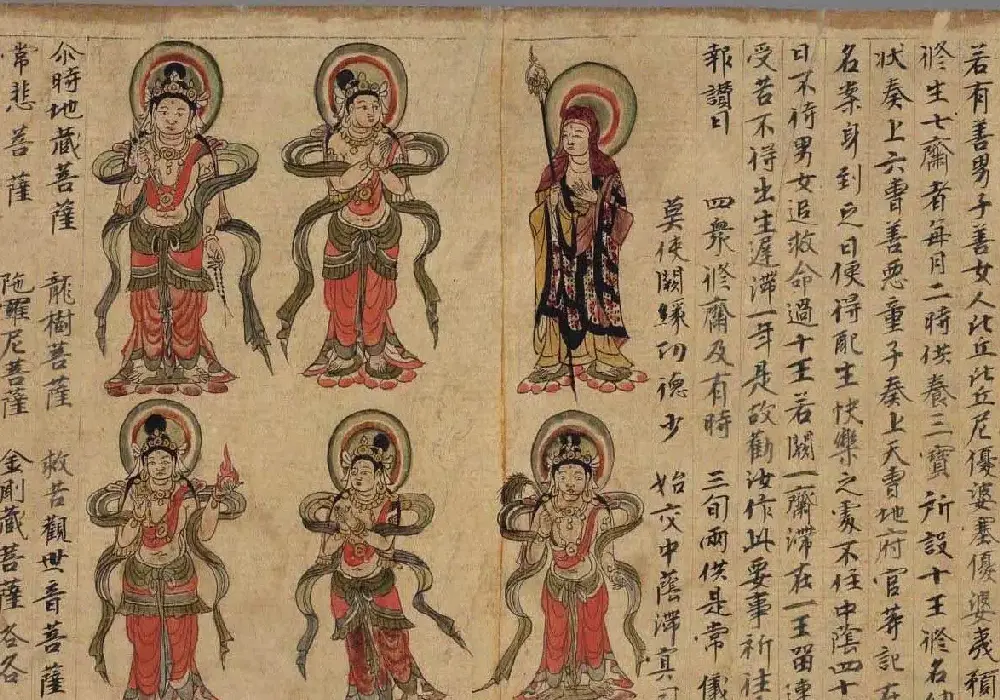 若有善男子善女人比丘比丘尼優婆塞優婆夷預
修生七齋者每月二時供養三寶所設十王修名
狀奏上六曹善惡童子奏上天曹地府官等記在
名案身到之日便得配生快樂之處不住中陰四十
日不待男女追救命過十王若闕一齋滯在一王留連
受苦不得出生遲滯一年是故勸汝作此要事祈往
報讚曰 四眾修齋及有時 三旬兩供是常儀
莫使闕緣功德少 始交中蔭滯冥司
尒時地藏菩薩 龍樹菩薩 救苦觀世音菩薩
常悲菩薩 陁羅尼菩薩 金剛藏菩薩 各各